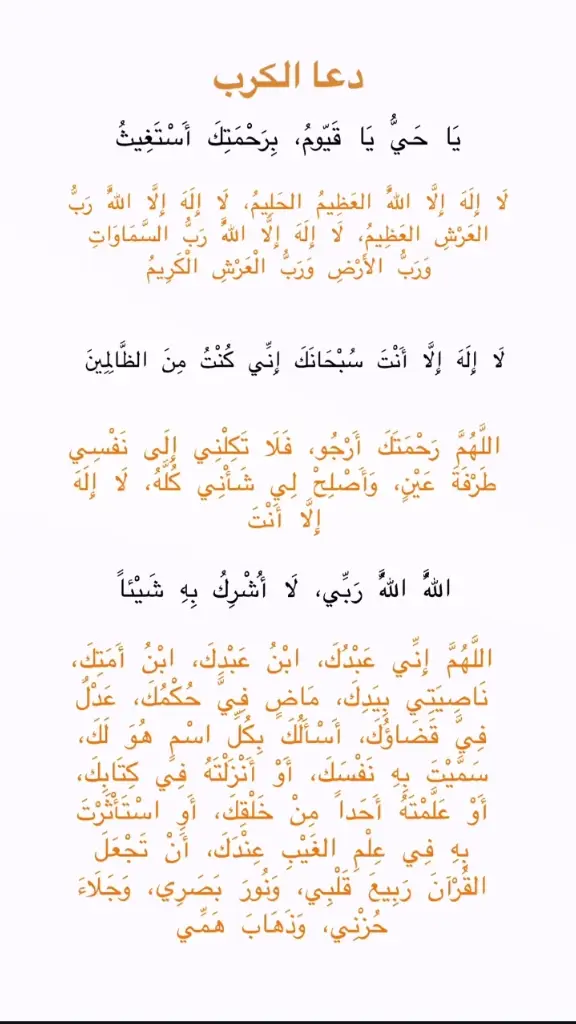 دعا الكرب
يَا حَيُّ يَا قَيّومُ، بِرَحْمَتِكَ أَسْتَغِيثُ
لَا إِلَهَ إِلَّا اللهُ العَظِيمُ الحَلِيمُ، لَا إِلَهَ إِلَّا اللهُ رَبُّ
العَرْشِ العَظِيمُ، لَا إِلَهَ إِلَّا اللهُ رَبُّ السَّمَاوَاتِ
وَرَبُّ الأَرْضِ وَرَبُّ الْعَرْشِ الْكَرِيمُ
لَا إِلَهَ إِلَّا أَنْتَ سُبْحَانَكَ إِنِّي كُنْتُ مِنَ الظَّالِمِينَ
اللَّهُمَّ رَحْمَتَكَ أَرْجُو، فَلَا تَكِلْنِي إِلَى نَفْسِي
طَرْفَةَ عَيْنٍ، وَأَصْلِحْ لِي شَأْنِي كُلَّهُ، لَا إِلَهَ
إِلَّا أَنْتَ
اللهُ اللهُ رَبِّي، لَا أُشْرِكُ بِهِ شَيْئاً
اللَّهُمَّ إِنِّي عَبْدُكَ، ابْنُ عَبْدِكَ، ابْنُ أَمَتِكَ،
نَاصِيَتِي بِيَدِكَ، مَاضٍ فِيَّ حُكْمُكَ، عَدْلٌ
فِيَّ قَضَاؤُكَ، أَسْأَلُكَ بِكُلِّ اسْمٍ هُوَ لَكَ،
سَمَّيْتَ بِهِ نَفْسَكَ، أَوْ أَنْزَلْتَهُ فِي كِتَابِكَ،
أَوْ عَلَّمْتَهُ أَحَداً مِنْ خَلْقِكَ، أَوِ اسْتَأْثَرْتَ
بِهِ فِي عِلْمِ الغَيْبِ عِنْدَكَ، أَنْ تَجْعَلَ
القُرْآنَ رَبِيعَ قَلْبِي، وَنُورَ بَصَرِي، وَجَلَاءَ
حُزْنِي، وَذَهَابَ هَمِّي